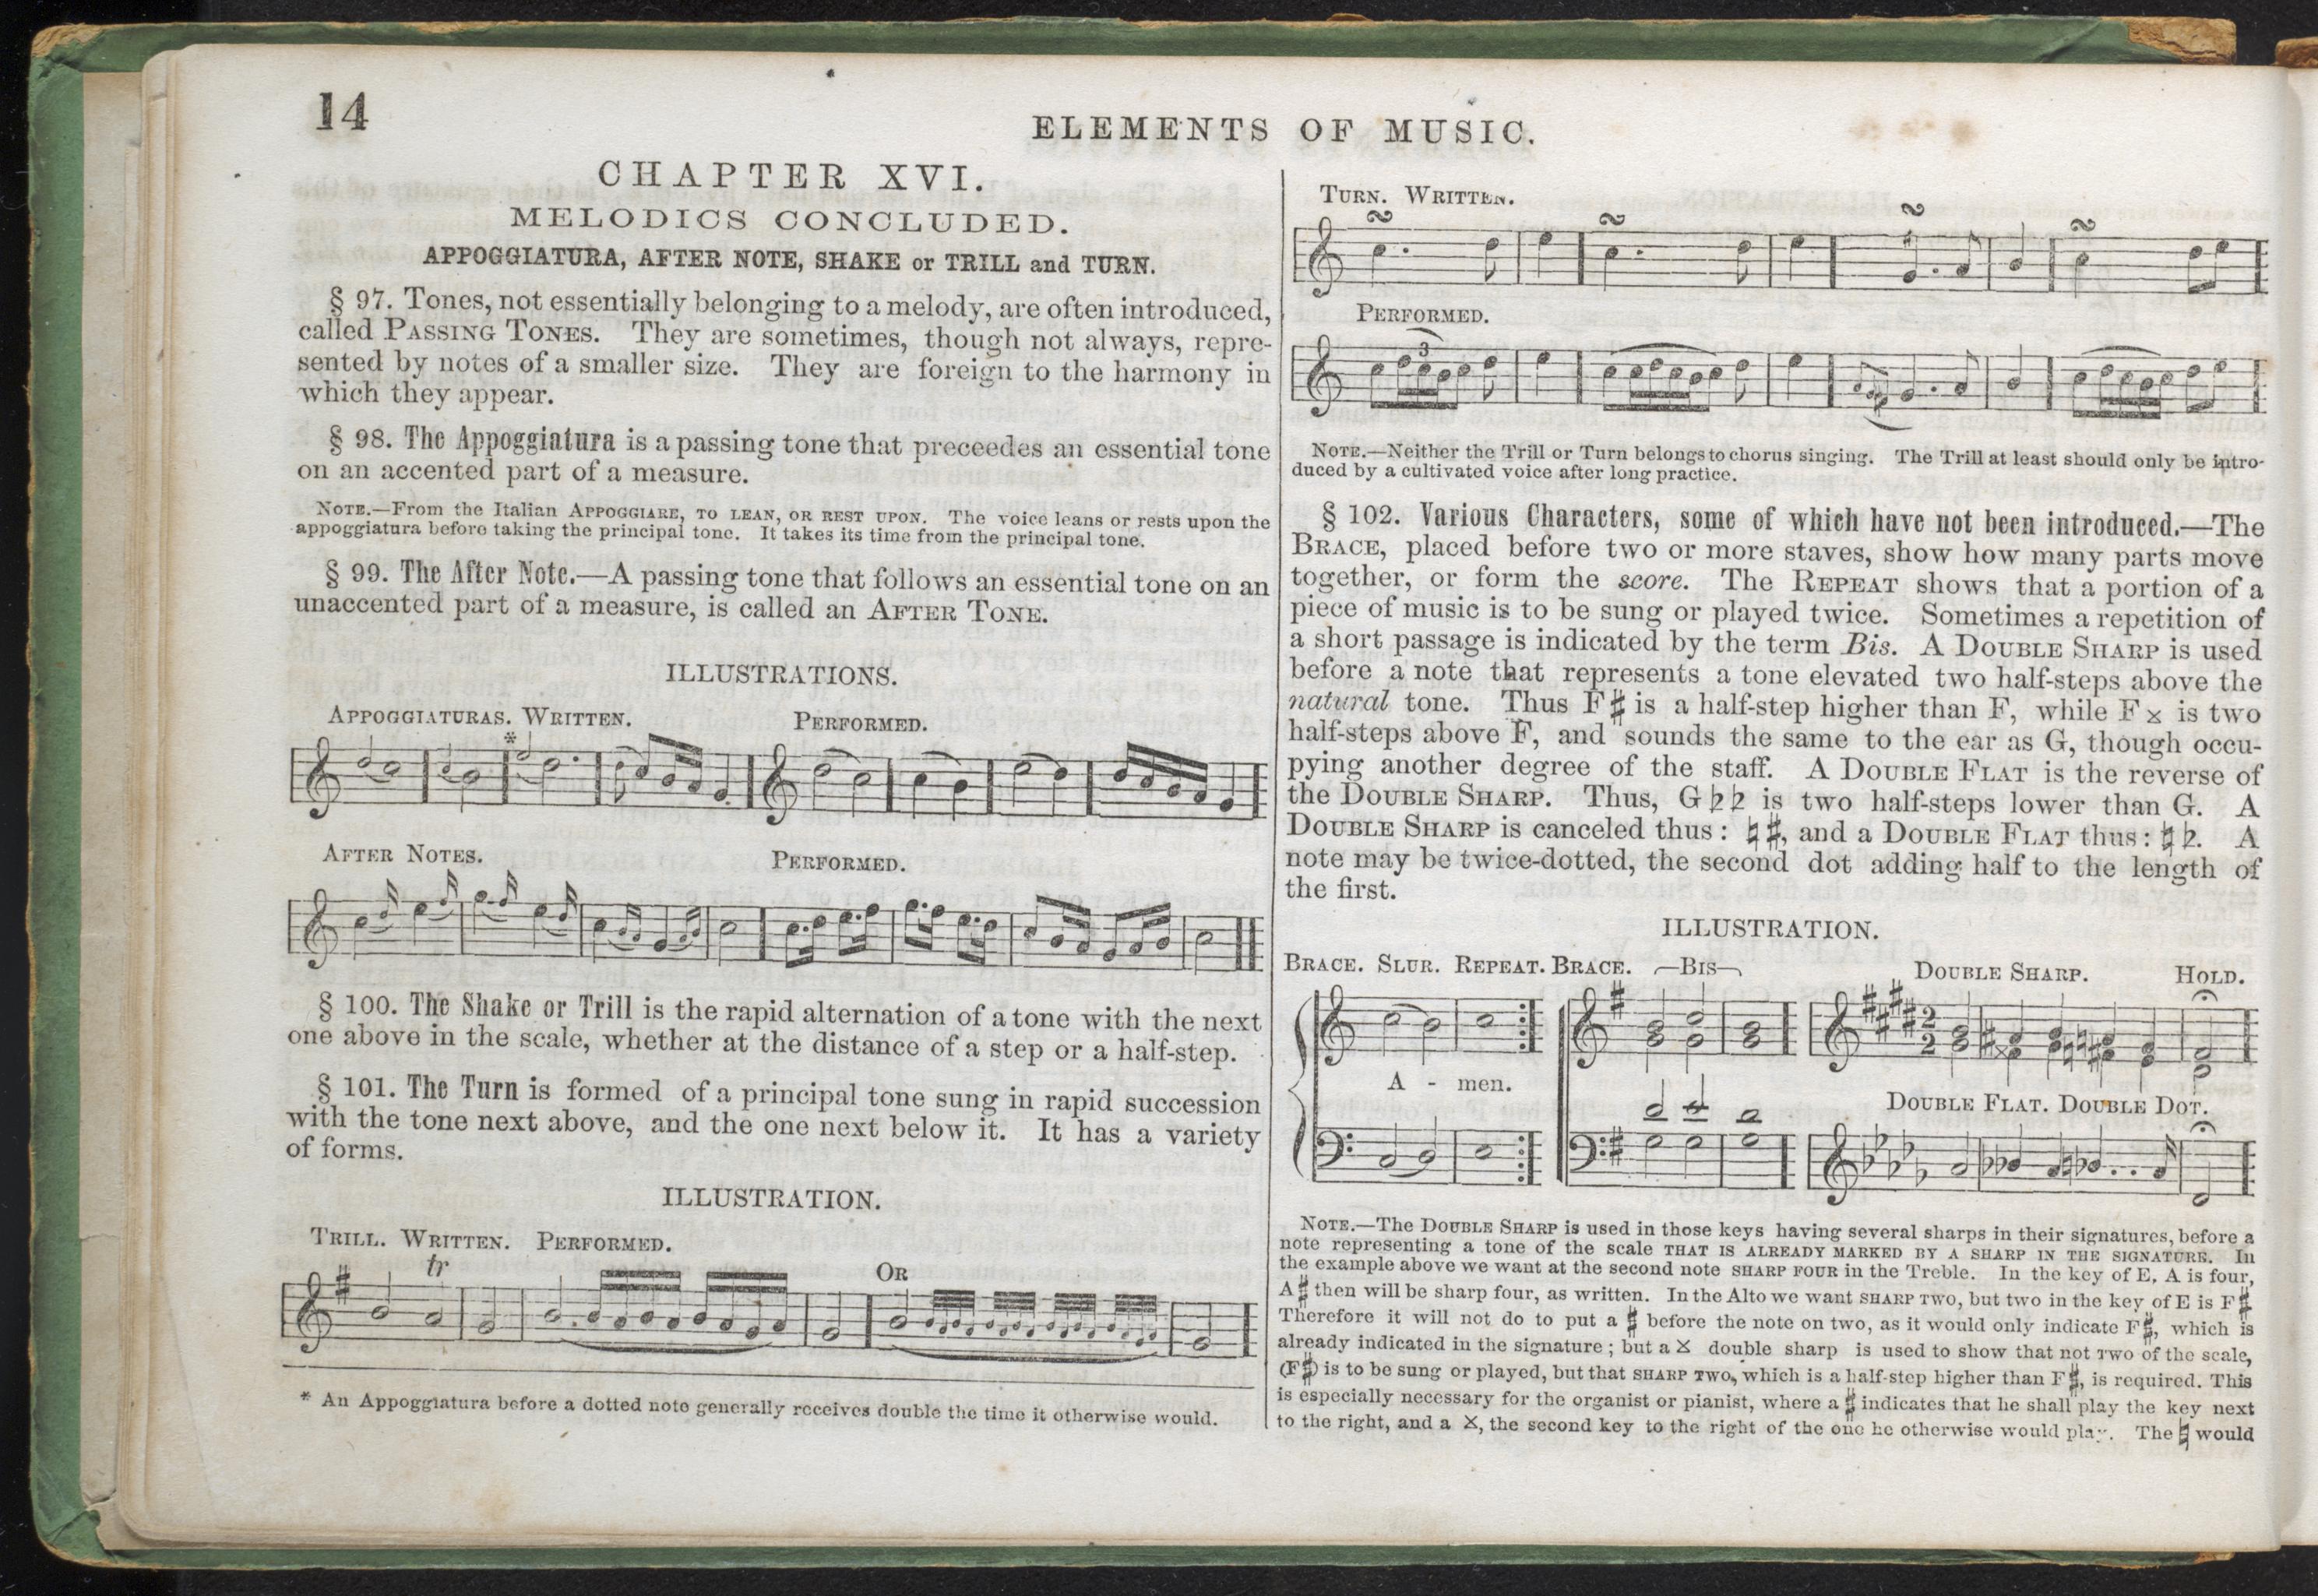 14
ELEMENTS OF MUSIC.
CHAPTER XVI.
MELODICS CONCLUDED.
APPOGGIATURA, AFTER NOTE, SHAKE or TRILL and TURN.
§ 97. Tones, not essentially belonging to a melody, are often introduced,
called PASSING TONES. They are sometimes, though not always, repre-
sented by notes of a smaller size. They are foreign to the harmony in
which they appear.
§ 98. The Appoggiatura is a passing tone that preceedes an essential tone
on an accented part of a measure.
NOTE.—From the Italian APPOGGIARE, TO LEAN, OR REST UPON. The voice leans or rests upon the
appoggiatura before taking the principal tone. It takes its time from the principal tone.
§ 99. The After Note.—A passing tone that follows an essential tone on an
unaccented part of a measure, is called an AFTER TONE.
ILLUSTRATIONS.
APPOGGIATURAS. WRITTEN. PERFORMED.
*
AFTER NOTES. PERFORMED.
§ 100. The Shake or Trill is the rapid alternation of a tone with the next
one above in the scale, whether at the distance of a step or a half-step.
§ 101. The Turn is formed of a principal tone sung in rapid succession
with the tone next above, and the one next below it. It has a variety
of forms.
ILLUSTRATION.
TRILL. WRITTEN. PERFORMED.
tr OR
* An Appoggiatura before a dotted note generally receives double the time it otherwise would.
TURN. WRITTEN.
PERFORMED.
3
NOTE.—Neither the Trill or Turn belongs to chorus singing. The Trill at least should only be intro-
duced by a cultivated voice after long practice.
§ 102. Various Characters, some of which have not been introduced.—The
BRACE, placed before two or more staves, show how many parts move
together, or form the score. The REPEAT shows that a portion of a
piece of music is to be sung or played twice. Sometimes a repetition of
a short passage is indicated by the term Bis. A DOUBLE SHARP is used
before a note that represents a tone elevated two half-steps above the
natural tone. Thus F♯ is a half-step higher than F, while F× is two
half-steps above F, and sounds the same to the ear as G, though occu-
pying another degree of the staff. A DOUBLE FLAT is the reverse of
the DOUBLE SHARP. Thus, G♭♭ is two half-steps lower than G. A
DOUBLE SHARP is canceled thus: ♮♯, and a DOUBLE FLAT thus: ♮♭. A
note may be twice-dotted, the second dot adding half to the length of
the first.
ILLUSTRATION.
BRACE. SLUR. REPEAT. BRACE. BIS DOUBLE SHARP. HOLD.
2
2
A - men.
DOUBLE FLAT. DOUBLE DOT.
NOTE.—The DOUBLE SHARP is used in those keys having several sharps in their signatures, before a
note representing a tone of the scale THAT IS ALREADY MARKED BY A SHARP IN THE SIGNATURE. In
the example above we want at the second note SHARP FOUR in the Treble. In the key of E, A is four,
A♯ then will be sharp four, as written. In the Alto we want SHARP TWO, but two in the key of E is F♯
Therefore it will not do to put a ♯ before the note on two, as it would only indicate F♯, which is
already indicated in the signature; but a × double sharp is used to show that not TWO of the scale,
(F♯) is to be sung or played, but that SHARP TWO, which is a half-step higher than F♯, is required. This
is especially necessary for the organist or pianist, where a ♯ indicates that he shall play the key next
to the right, and a ×, the second key to the right of the one he otherwise would play. The ♮ would